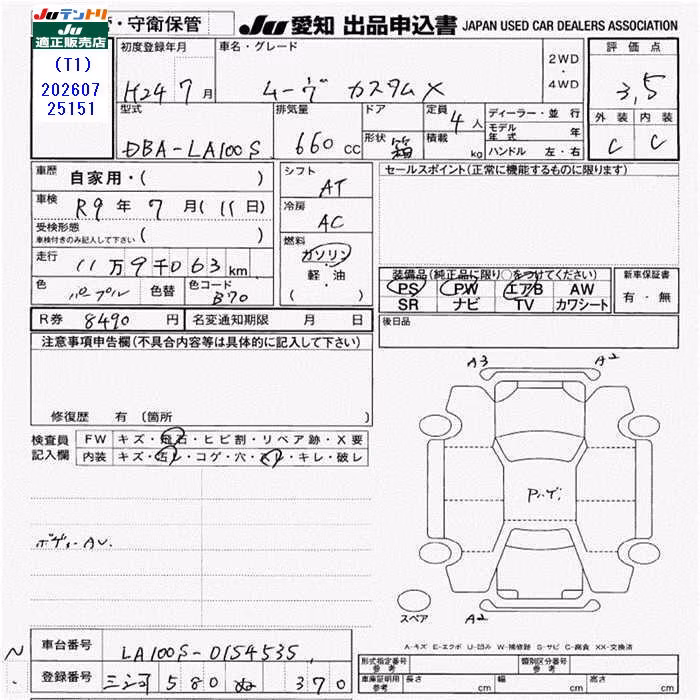 JUテントリ
JU適正販売店
(T1)
202607
25151
・守衛保管
JU 愛知 出品申込書 JAPAN USED CAR DEALERS ASSOCIATION
初度登録年月 H24 7月
車名・グレード ムーヴ カスタム X
2WD・4WD
評価点 3,5
外装 内装
C C
型式 DBA-LA100S
排気量 660 cc
ドア 形状 箱
定員 4人
積載 kg
ディーラー・並行
モデル年式 年
ハンドル 左・右
車歴 自家用・( )
車検 R9年 7月(11日)
受検形態 ( )
車検付きのみ記入して下さい
走行 11万9千063km
色 パープル 色替 色コード B70
シフト AT
冷房 AC
燃料 ガソリン
軽・油
( ・ )
セールスポイント(正常に機能するものに限ります)
装備品(純正品に限り○をつけてください)
PS PW エアB AW
SR ナビ TV カワシート
新車保証書
有・無
R券 8490円 名変通知期限 月 日
後日品
注意事項申告欄(不具合内容等は具体的に記入して下さい)
修復歴 有(箇所
検査員記入欄
FW キズ・飛石・ヒビ割・リペア跡・X要
内装 キズ・汚レ・コゲ・穴・スレ・キレ・破レ
ボディ AU.
A3 A2
A2
スペア
A-キズ E-エクボ U-凹み W-補修跡 S-サビ C-腐食 XX-交換済
N
車台番号 LA100S-0154535
登録番号 三河 580 ぬ 370
型式指定番号 参考
類別区分番号 参考
車庫証明用 参考 長さ cm 幅 cm 高さ cm